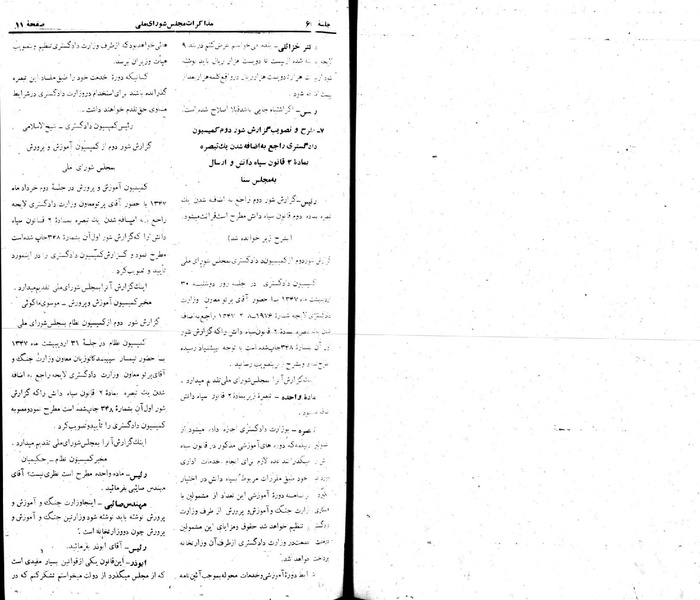 جلسه ۶۰ مذاکرات مجلس شورای ملی صفحهٔ ۱۱
دکتر خزائلی- بنده می‌خواستم عرض کنم در بند ۹
لایحه
رئیس- اگر اشتباه چاپی باشد قبلا اصلاح شده است.
۷- طرح و تصویب گزارش شور دوم کمیسیون
دادگستری راجع به اضافه شدن یک تبصره
بمادهٔ ۲ قانون سپاه دانش و ارسال
به مجلس سنا
رئیس- گزارش شور دوم راجع به اضافه شدن یک
تبصره بماده دوم قانون سپاه دانش مطرح است قرائت میشود.
(بشرح زیر خوانده شد)
گزارش شور دوم از کمیسیون دادگستری به مجلس شورای ملی
کمیسیون دادگستری در جلسه روز دوشنبه ۳۰
اردیبهشت ماه ۱۳۴۷ با حضور آقای پرتو معاون وزارت
دادگستری لایحه شمارهٔ ۱۹۷۶ ۲ ۱۳۴۷ راجع به اضافه
شدن یک تبصره بمادهٔ ۲ قانون سپاه دانش را که گزارش شور
اول آن بشمارهٔ ۳۴۸ چاپ شده است با توجه به پیشنهاد رسیده
مطرح و بشرح زیر بتصویب رسانید.
اینک گزارش آنرا به مجلس شورای ملی تقدیم میدارد.
مادهٔ واحده - تبصرهٔ زیر بمادهٔ ۲ قانون سپاه دانش
اضافه میشود.
تبصره- بوزارت دادگستری اجازه داده میشود از
مشمولین که دوره‌های آموزشی مذکور در قانون سپاه
دانش را میگذرانند عده لازم برای انجام خدمات اداری
خود طبق مقررات مربوط سپاه دانش در اختیار
بگیرد برنامه دورهٔ آموزشی این تعداد از مشمولین با
همکاری وزارت جنگ و آموزش و پرورش از طرف وزارت
دادگستری تنظیم خواهد شد حقوق و مزایای این مشمولین
در وزارت دادگستری از طرف آن وزارتخانه
پرداخت خواهد شد.
ضوابط دورهٔ آموزشی و خدمات محوله بموجب آئین‌نامه
هائی خواهد بود که از طرف وزارت دادگستری تنظیم و بتصویب
هیأت وزیران برسد.
کسانیکه دورهٔ خدمت خود را طبق مفاد این تبصره
گذرانده باشند برای استخدام در وزارت دادگستری در شرایط
مساوی حق تقدم خواهند داشت.
رئیس کمیسیون دادگستری - شیخ‌الاسلامی
گزارش شور دوم از کمیسیون آموزش و پرورش
به مجلس شورای ملی
کمیسیون آموزش و پرورش در جلسهٔ دوم خرداد ماه
۱۳۴۷ با حضور آقای پرتو معاون وزارت دادگستری لایحه
راجع به اضافه شدن یک تبصره بمادهٔ ۲ قانون سپاه
دانش را که گزارش شور اول آن بشمارهٔ ۳۴۸ چاپ شده است
مطرح نمود و گزارش کمیسیون دادگستری را در اینمورد
تأیید و تصویب کرد.
اینک گزارش آنرا به مجلس شورای ملی تقدیم میدارد.
مخبر کمیسیون آموزش و پرورش - موسوی ماکوئی
گزارش شور دوم از کمیسیون نظام به مجلس شورای ملی
کمیسیون نظام در جلسهٔ ۳۱ اردیبهشت ماه ۱۳۴۷
با حضور تیمسار سپهبد کاتوزیان معاون وزارت جنگ و
آقای پرتو معاون وزارت دادگستری لایحه راجع به اضافه
شدن یک تبصره بمادهٔ ۲ قانون سپاه دانش را که گزارش
شور اول آن بشمارهٔ ۳۴۸ چاپ شده است مطرح نمود و مصوبه
کمیسیون دادگستری را تأیید و تصویب کرد.
اینک گزارش آنرا به مجلس شورای ملی تقدیم میدارد.
مخبر کمیسیون نظام - حکیمیان
رئیس- ماده واحده مطرح است نظری نیست؟ آقای
مهندس صائبی بفرمائید.
مهندس صائبی- اینجا وزارت جنگ و آموزش و
پرورش نوشته باید نوشته شود وزارتین جنگ و آموزش و
پرورش چون دو وزارتخانه است.
رئیس- آقای ابوذر بفرمائید.
ابوذر- این قانون یکی از قوانین بسیار مفیدی است
که از مجلس میگذرد از دولت میخواستم تشکر کنم که در